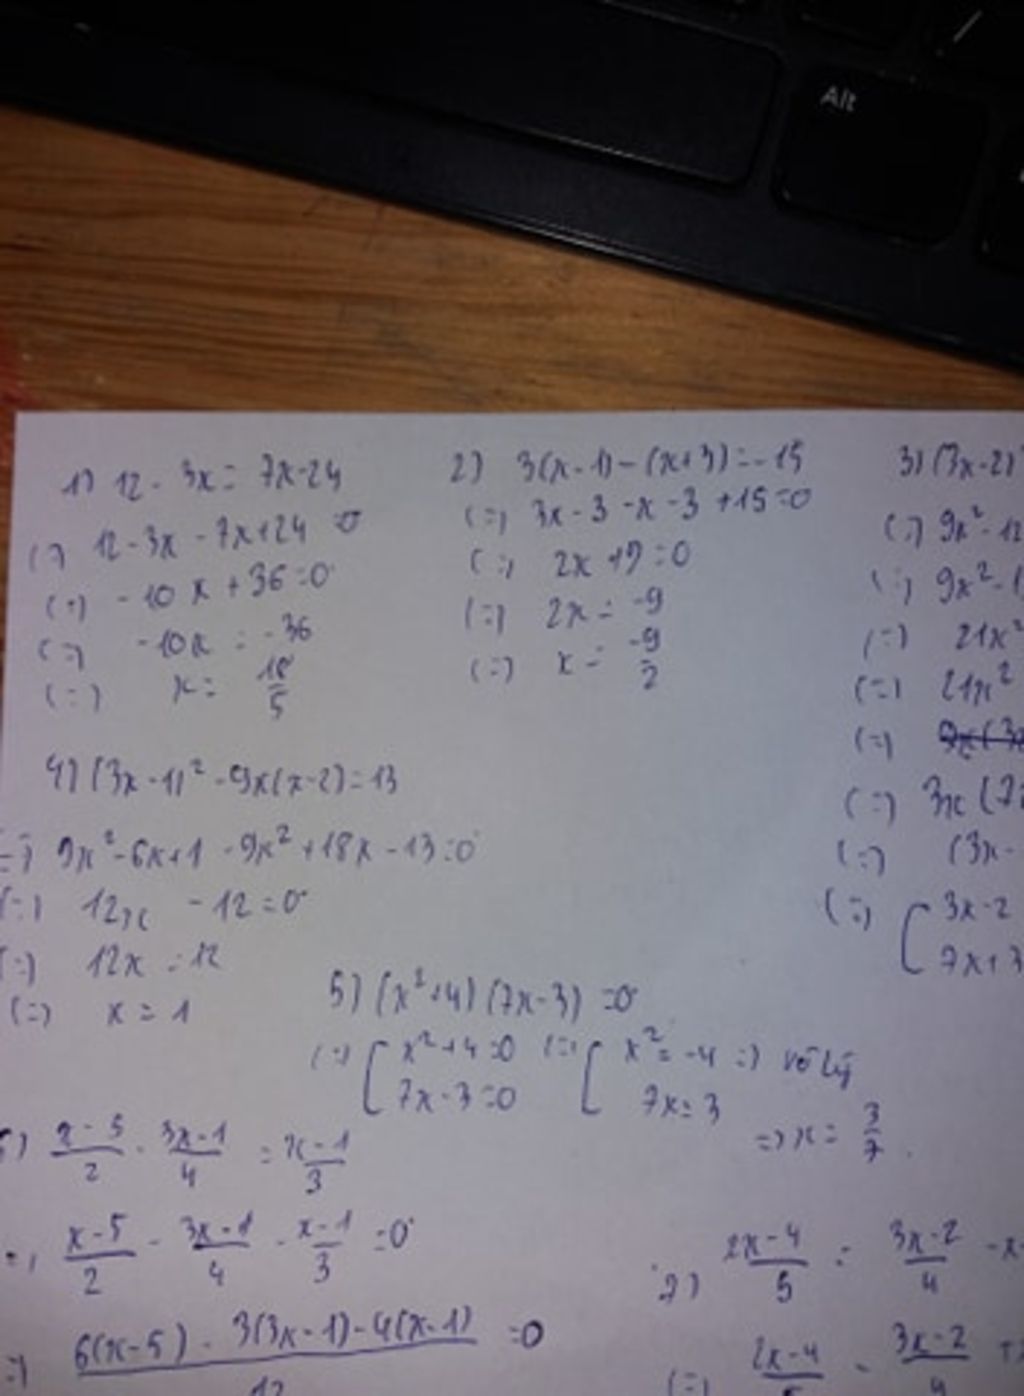 Alt
1) 12 - 3x = 7x-24
(=) 12-3x - 7x+24 =0
(=) -10x + 36=0
(=) -10x = -36
(=) x = 18/5
2) 3(x-1)-(x+3)=-15
(=) 3x-3-x-3+15=0
(=) 2x+9=0
(=) 2x = -9
(=) x = -9/2
3) (3x-2)
(=) 9x²-12
(=) 9x²-(
(=) 21x²
(=) 21x²
(=)
(=) 3x(7x
(=) (3x-
(=) [ 3x-2
7x+3
4) (3x-1)² -9x(x-2)=13
(=) 9x²-6x+1-9x²+18x-13=0
(=) 12x -12=0
(=) 12x =12
(=) x = 1
5) (x²+4)(7x-3)=0
(=) [ x²+4=0 (=) [ x²=-4 => vô lý
7x-3=0 7x=3
=> x = 3/7.
6) x-5/2 - 3x-1/4 = x-1/3
(=) x-5/2 - 3x-1/4 - x-1/3 =0
(=) 6(x-5) - 3(3x-1)-4(x-1)/12 =0
2x-4/5 = 3x-2/4 -x
(=) 2x-4/5 - 3x-2/4